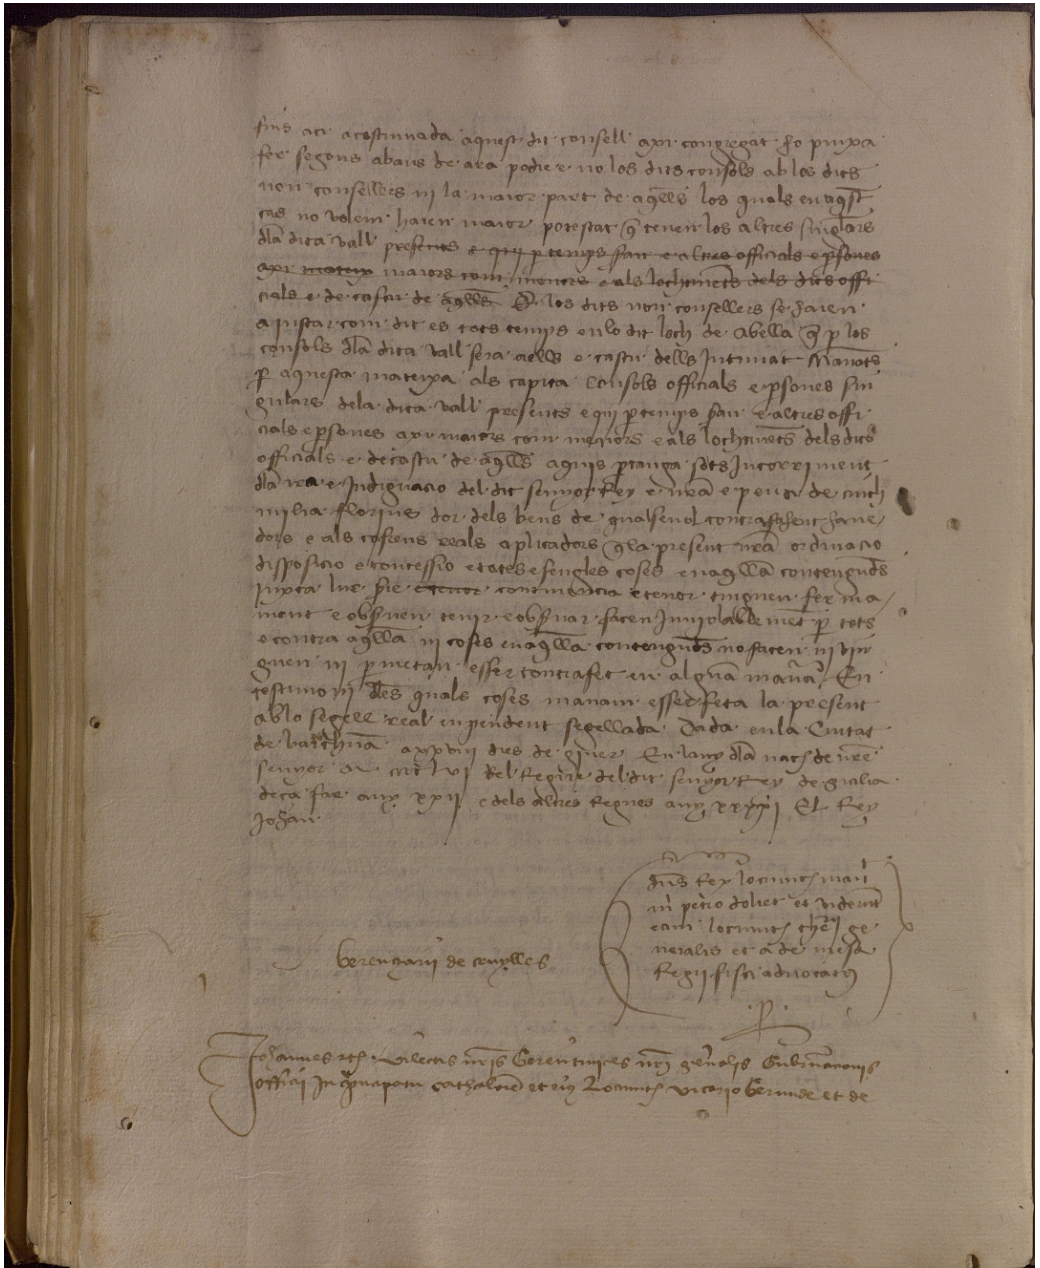 fins aci acostumada aquest dit consell axi congregat ho puixa
fer segons abans de ara podie e no los dits consols ab los dits
nou consellers ni la maior part de aqlls los quals en aqst
cas no volem haien maior potestat q tenen los altres singlars
dla dita vall presents e qui p temps seran e altres officials e psones
axi mateix maiors com menors e als lochtinets dels dits offi
cials e de cascu de aqlls E los dits nou consellers se haien
aiustar com dit es tots temps en lo dit loch de Abella q p los
consols dla dita vall sera a ells e cascu dells intimat Manats
p aquesta mateixa als capita consols officials e psones sin
gulars dela dita vall presents e qui p temps seran e altres offi
cials e psones axi maiors com menors e als lochtinets dels dits
officials e de cascu de aqlls aquis ptanga sots incorriment
dla ira e indignacio del dit senyor Rey e nra e pena de cinch
milia florins dor dels bens de qualsevol contrafahent have
dors e als cofrens reals aplicadors q la present nra ordinacio
disposicio e concessio e totes e sengles coses en aqlla contengudes
iuxta lur sie e tenor continencia e tenor tinguen ferma
ment e observen tenir e observar facen inviolablemet p tots
e contra aqlla ni coses en aqlla contengudes no facen ni vin
guen ni pmetan esser contrafet en alguna manera En
testimoni dles quals coses manam esser feta la present
ab lo segell real en pendent segellada Dada en la Ciutat
de barchna a xxviii dies de giner En lany dla nat de nre
senyor M cccc lvi del Regne del dit senyor Rey de sicilia
deça far any xxii e dels altres Regnes any xxxxi El Rey
Johan
dns Rex locumt mait
in petro dolivet et viderunt
eam locumt thesri ge
neralis et a de mesa
Regii fisci advocatus
Berengarii de cruylles
p
Johannes etc dilectis nris Gerentivices nri gnalis Gubnacionis
officii in principatu cathalonie et eius locumt vicario Gerunde et de